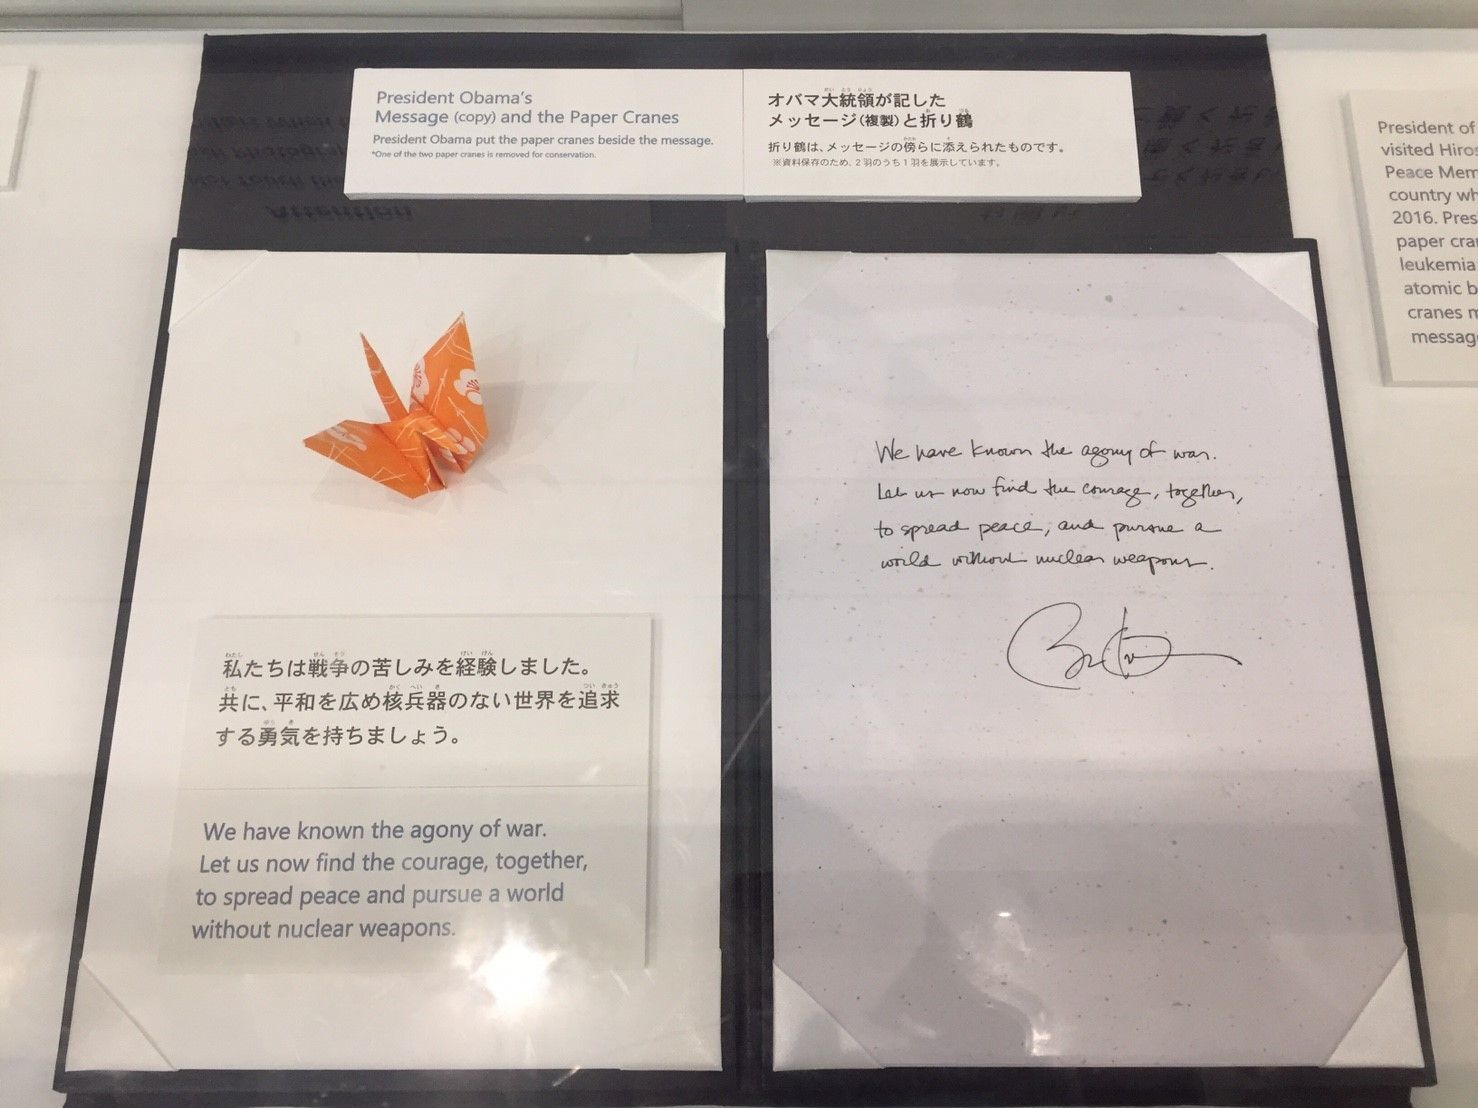 President Obama's
Message (copy) and the Paper Cranes
President Obama put the paper cranes beside the message.
*One of the two paper cranes is removed for conservation.
オバマ大統領が記した
メッセージ(複製)と折り鶴
折り鶴は、メッセージの傍らに添えられたものです。
※資料保存のため、2羽のうち1羽を展示しています。
私たちは戦争の苦しみを経験しました。
共に、平和を広め核兵器のない世界を追求
する勇気を持ちましょう。
We have known the agony of war.
Let us now find the courage, together,
to spread peace and pursue a world
without nuclear weapons.
We have known the agony of war.
Let us now find the courage, together,
to spread peace, and pursue a
world without nuclear weapons.
President of
visited Hiros
Peace Mem
country wh
2016. Pres
paper cra
leukemia
atomic b
cranes m
messag
Attention